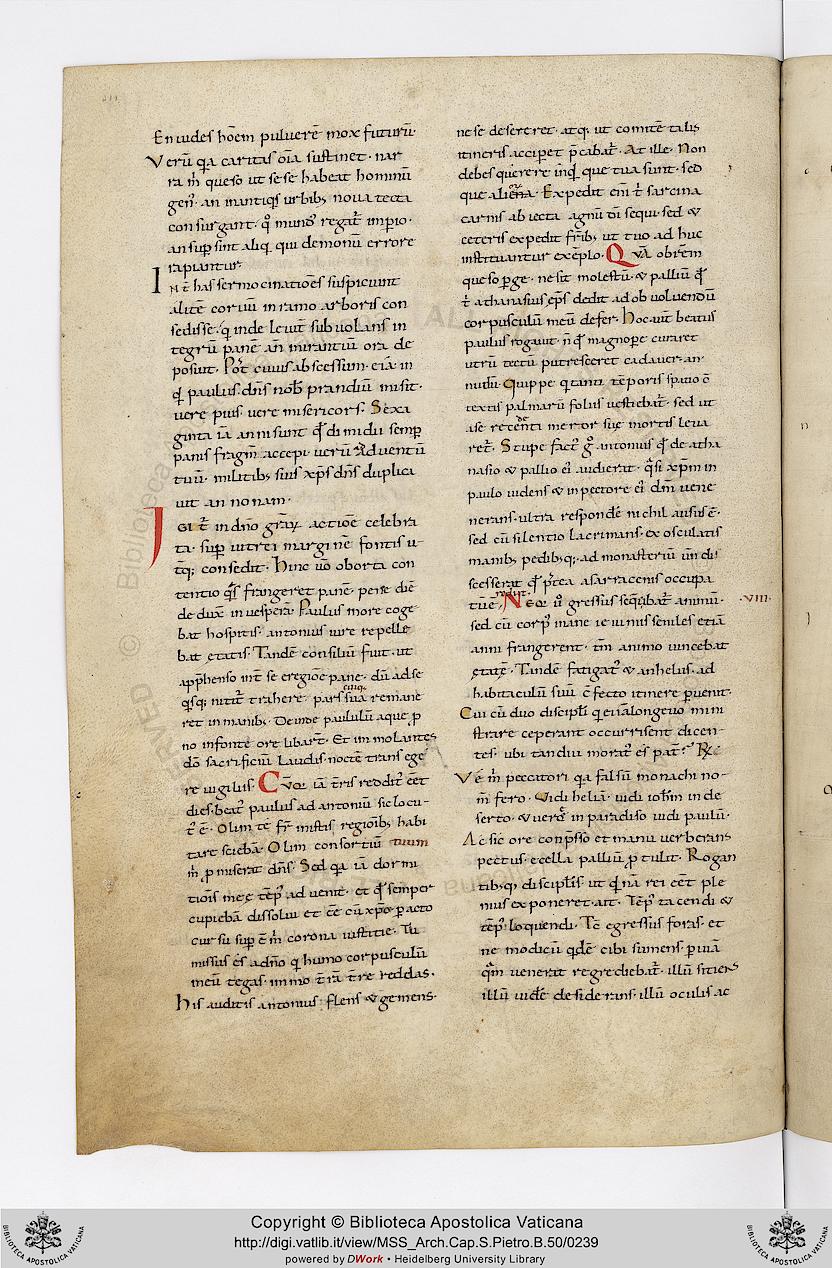 En uides hoēm puluerē mox futurū.
Verū q̄a caritas oīa sustinet. nar
ra m̄ queso ut sese habeat hominū
gen'. an in antiq̄s urbib; noua tecta
consurgant. q̊ mund' regat̄ imp̄io.
an sup̄sint aliq̄ qui demonū errore
rapiantur.
Int̄ has sermocinatioēs suspiciunt
alitē coruū in ramo arboris con
sedisse. q̄ inde leuit̄ subuolans in
tegrū panē an̄ mirantiū ora de
posuit. Po't cuius abscessum. eia in
q̄t paulus. dn̄s nob̄ prandiū misit.
uere pius. uere misericors. Sexa
ginta iā anni sunt q̄d dimidii semp̄
panis fragm̄ accepi. uerū ad aduentū
tuū. militib; suis xp̄s dn̄s duplica
uit annonam.
Igit̄ in dn̄o grāꝝ actioē celebra
ta. sup̄ uitrei marginē fontis u
t̄q; consedit. hinc uō oborta con
tentio q̄s frangeret panē. pene diē
deduxē in uesperā. Paulus more coge
bat hospitis. antonius iure repelle
bat ętatis. Tandē consiliū fuit. ut
app̄henso int̄ se eregiōe pane. dū ad se
q̄sq; nitit̄ trahere. pars sua cuiq; remane
ret in manib;. Deinde paululū aque p̄
no in fonte ore libart̄. Et immolantes
dō sacrificiū laudis. noctē transege
re uigiliis. Cūq; iā t̄ris reddit' eēt
dies. beat' paulus ad antoniū sic locu
t' ē. Olim te fr̄ in istis regioīb; habi
tare sciebā. Olim consortiū tuum
m̄ p̄miserat dn̄s. Sed q̄a iā dormi
tiōis meę tēp' aduenit. et q̄d semper
cupiebā dissolui et cē cū xp̄o p̄acto
cursu sup̄ē m̄ corona iustitie. Tu
missus es adn̄o q̄ humo corpusculū
meū tegas. immo t̄rā t̄re reddas.
his auditis antonius flens & gemens.
ne se desereret. atq; ut comitē talis
itineris acciperet p̄cabat̄. At ille. Non
debes querere inq̄t que tua sunt. sed
que aliena. Expedit eni t̄ sarcina
carnis abiecta agnū dī sequi. sed &
ceteris expedit fr̄ib; ut tuo adhuc
instituantur exēplo. Quā obrēm
queso p̄ge. ne sit molestū. & palliū q̄d
t̄ athanasius ep̄s dedit ad obuoluendū
corpusculū meū defer. hoc aut̄ beatus
paulus rogauit. n̄ q̄d magnope curaret
utrū tectū putresceret cadauer. an
nudū. Quippe q̄ tanti tēporis spatio cō
textis palmarū foliis uestiebat̄. sed ut
a se recedenti meror suę mortis leua
ret̄. Stupefact' g̊ antonius q̄d de atha
nasio & pallio ei' audierat. q̄si xp̄m in
paulo uidens & in pectore ei' dm̄ uene
nerans. ultra respondē nichil ausus ē.
sed cū silentio lacrimans. exosculatis
manib; pedibsq;. ad monasteriū un̄ di
scesserat q̄d p̄tea a sarracenis occupa
tū ē. rediit. Neq; u̇ gressus seq̄bat̄ animū. ·VIII·
sed cū corp' inane ieiuniis seniles etiā
anni frangerent. tm̄ animo uincebat
ętatē. Tandē fatigat' & anhelus. ad
habitaculū suū cōfecto itinere p̄uenit.
Cui cū duo discipli q̄ ei iā longeuo mini
strare ceperant occurrissent dicen
tes. ubi tandiu morat' es pat̄? Rx̄
Vę m̄ peccatori q̄a falsū monachi no
m̄ fero. Vidi heliā. uidi ioh̄m in de
serto. & uere in paradiso uidi paulū.
Ac sic ore conp̄sso et manu uerberans
pectus. e cella palliū p̄tulit. Rogan
tibq; discipl̄is. ut q̄nā rei eēt ple
nius exponeret. ait. Tēp' tacendi &
tēp' loquendi. Tc̄ egressus foras. et
ne modicū q̄dē cibi sumens. p̄ uiā
q̄m uenerat regrediebat̄. illū sitiens
illū uidē desiderans. illū oculis ac
Copyright © Biblioteca Apostolica Vaticana
http://digi.vatlib.it/view/MSS_Arch.Cap.S.Pietro.B.50/0239
powered by DWork • Heidelberg University Library